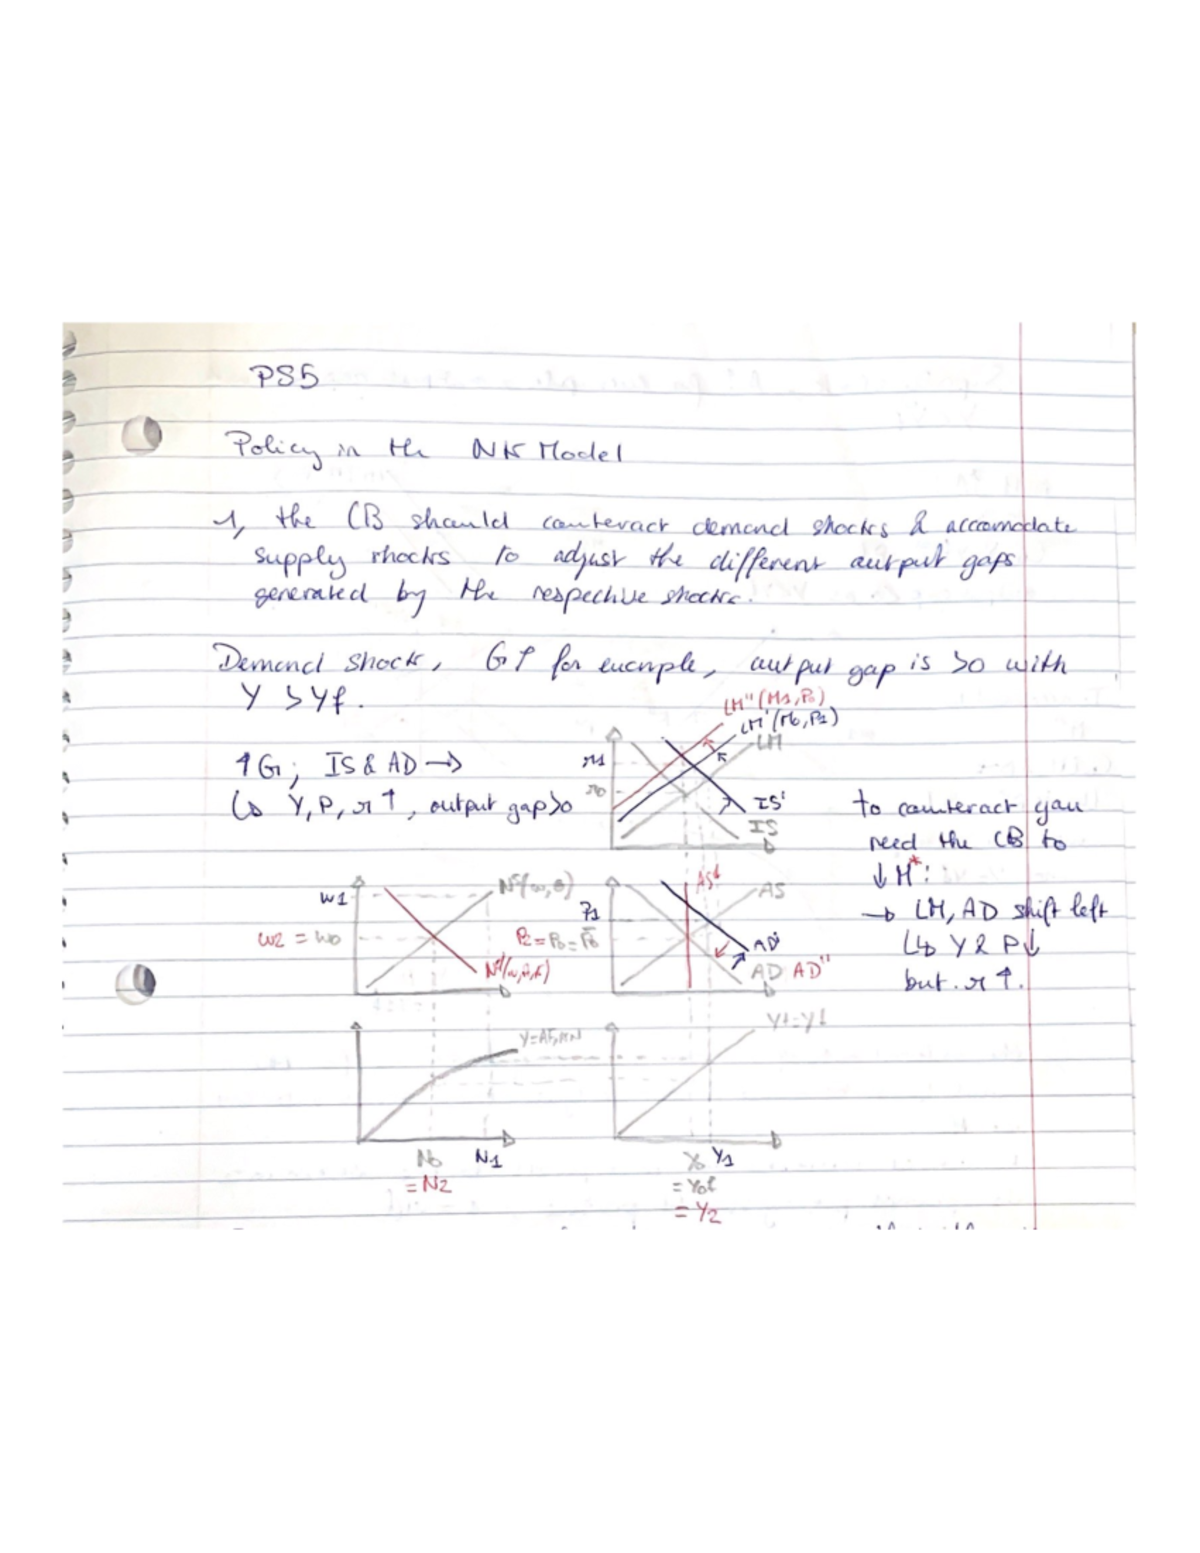 PS5
Policy in the NK Model
1, the CB should counteract demand shocks & accomodate
supply shocks to adjust the different output gaps
generated by the respective shocks.
Demand shock, G↑ for example, output gap is >0 with
Y > Yf.
LM"(M1,P0)
LM'(M0,P1)
LM
↑G; IS & AD →
r1
r0
↳ Y, P, r ↑, output gap >0
IS'
IS
to counteract you
need the CB to
↓M*:
→ LM, AD shift left
↳ Y & P↓
but r ↑.
w1
w2 = w0
P1
P2 = P0 = P̄0
AS
AD'
AD AD"
N0 N1
= N2
Y0 Y1
= Y0f
= Y2